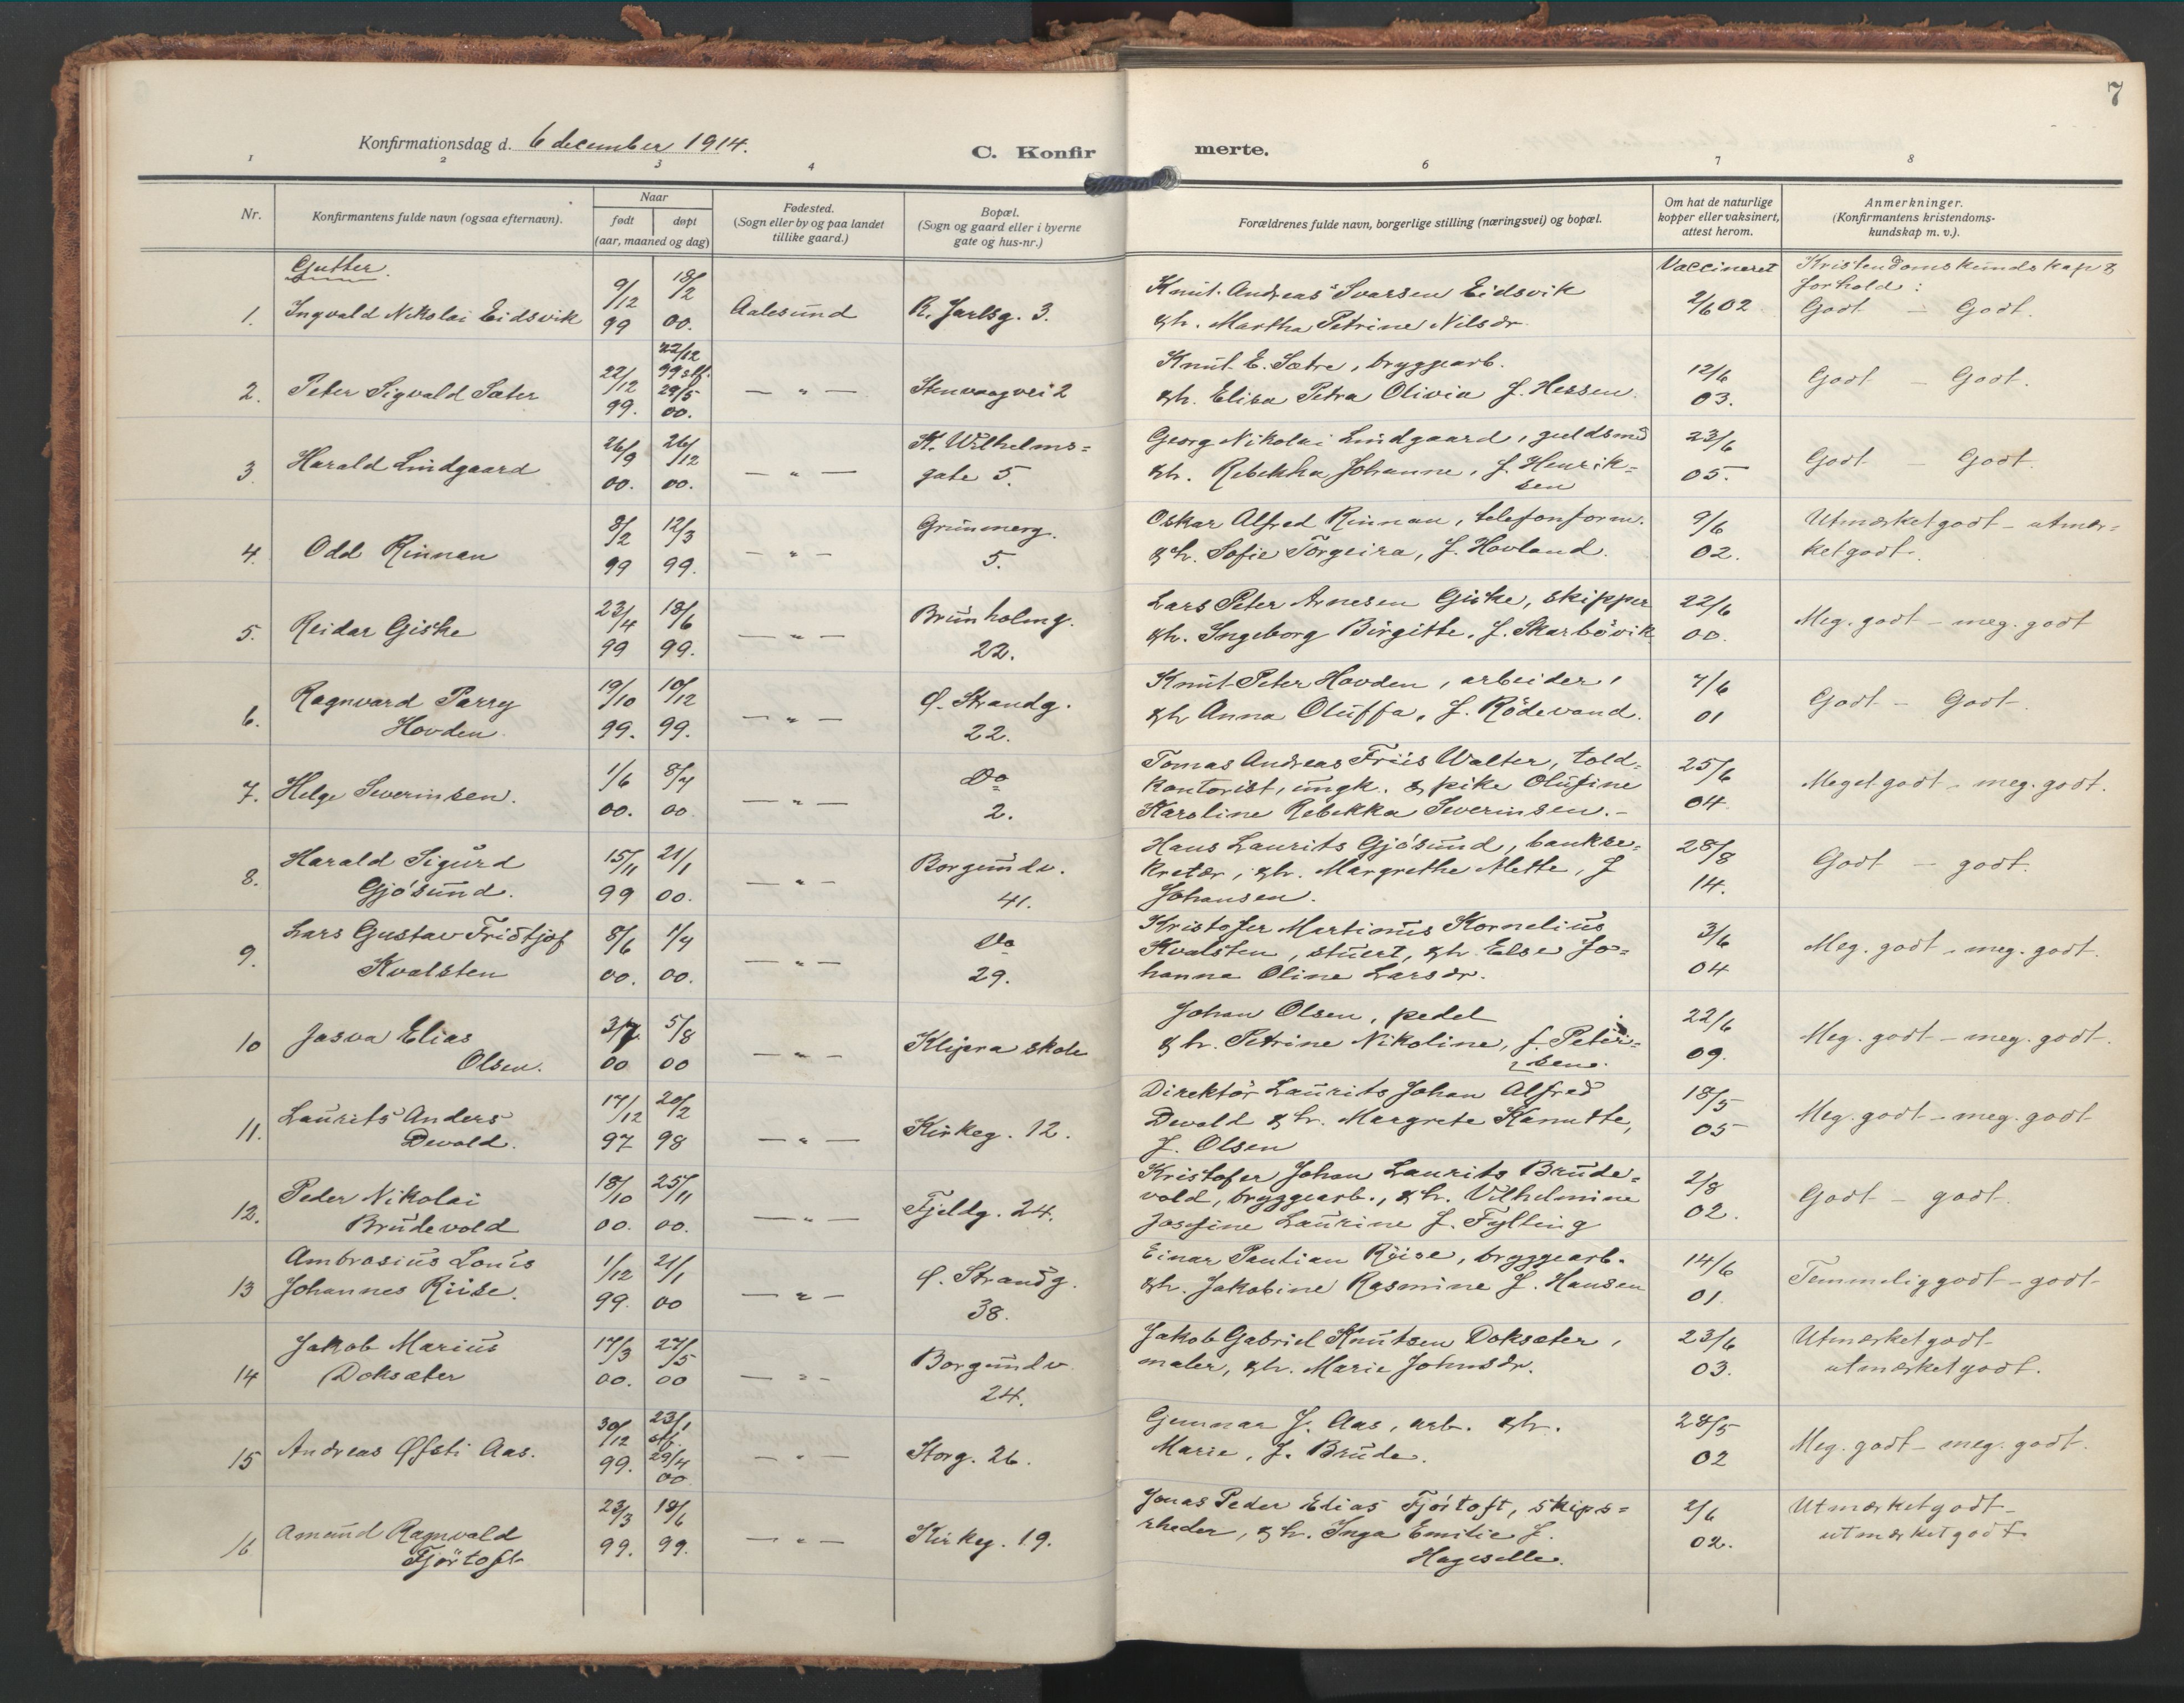 7
Konfirmationsdag d. 6 december 1914.
C. Konfirmerte.
1 2 3 4 6 7 8
Nr. | Konfirmantens fulde navn (ogsaa efternavn). | Naar født døpt (aar, maaned og dag) | Fødested. (Sogn eller by og paa landet tillike gaard.) | Bopæl. (Sogn og gaard eller i byerne gate og hus-nr.) | Forældrenes fulde navn, borgerlige stilling (næringsvei) og bopæl. | Om hat de naturlige kopper eller vaksinert, attest herom. | Anmerkninger. (Konfirmantens kristendoms-kundskap m. v.).
Gutter.
Vaccineret
Kristendomskundskap & forhold:
1. Ingvald Nikolai Eidsvik | 9/12 99 | 18/2 00. | Aalesund | R. Jarlsg. 3. | Knut Andreas Ivarsen Eidsvik & h. Martha Petrine Nilsdr. | 2/6 02 | Godt – Godt.
2. Peter Sigvald Sæter | 22/12 99. | 22/12 99 stf. 29/5 00. | — " — | Stenvaagvei 2 | Knut E. Sætre, bryggearb. & h. Elisa Petra Olivia f. Hessen. | 12/6 03. | Godt – Godt.
3. Harald Lindgaard | 26/9 00. | 26/12 00. | — " — | K. Wilhelms=gate 5. | Georg Nikolai Lindgaard, guldsmed & h. Rebekka Johanne, f. Henrik=sen | 23/6 05. | Godt – Godt.
4. Odd Rinnan | 8/2 99 | 12/3 99. | — " — | Grimmerg. 5. | Oskar Alfred Rinnan, telefonform. & h. Sofie Torgeira, f. Hovland. | 9/6 02. | Utmerket godt – utmer=ket godt.
5. Reidar Giske | 23/4 99 | 18/6 99. | — " — | Brunholmg. 22. | Lars Peter Arnesen Giske, skipper & h. Ingeborg Birgitte, f. Skarbövik | 22/6 00. | Meg. godt – meg. godt
6. Ragnvard Parry Hovden. | 19/10 99. | 10/12 99. | — " — | Ø. Strandg. 22. | Knut Peter Hovden, arbeider, & h Anna Oluffa, f. Rödevand. | 7/6 01 | Godt – Godt.
7. Helge Severinsen. | 1/6 00. | 8/7 00 | — " — | Do 2. | Tomas Andreas Friis Walter, told=kontorist, ungk. & pike Olufine Karoline Rebekka Severinsen. – | 25/6 04. | Meget godt – meg. godt.
8. Harald Sigurd Gjösund. | 15/11 99 | 21/1 00. | — " — | Borgundv. 41. | Hans Laurits Gjösund, bankse=kretær, & h. Margrethe Mette, f Johansen. | 28/8 14. | Godt – godt.
9. Lars Gustav Fridtjof Kvalsten | 8/6 00. | 1/7 00. | — " — | Do 29. | Kristofer Martinus Kornelius Kvalsten, stuert, & h. Else Jo=hanna Oline Larsdr. | 3/6 04 | Meg. godt – meg. godt.
10 Josva Elias Olsen. | 3/7 00 | 5/8 00 | — " — | Klipra skole | Johan Olsen, pedel & h. Petrine Nikoline, f. Peter=sen. | 22/6 09. | Meg. godt – meg. godt.
11. Laurits Anders Devold. | 17/12 97 | 20/2 98 | — " — | Kirkeg. 12. | Direktör Laurits Johan Alfred Devold & h. Margrete Kanutte, f. Olsen | 18/5 05 | Meg. godt – meg. godt
12. Peder Nikolai Brudevold | 18/10 00. | 25/11 00. | — " — | Fjeldg. 24. | Kristofer Johan Laurits Brude=vold, bryggearb., & h. Vilhelmine Josefine Laurine f. Fylling | 2/8 02. | Godt – godt.
13 Ambrosius Louis Johannes Riise. | 1/12 99. | 21/1 00 | — " — | Ø. Strandg. 38. | Einar Paulian Riise, bryggearb. & h. Jakobine Rasmine f. Hansen | 14/6 01. | Temmelig godt – godt
14 Jakob Marius Doksæter | 17/3 00. | 27/5 00 | — " — | Borgundv. 24. | Jakob Gabriel Knutsen Doksæter, maler, & h. Marie Johnsdr. | 23/6 03. | Utmerket godt utmerket godt.
15 Andreas Øfsti Aas. | 30/12 99. | 23/1 stf. 29/4 00 | — " — | Storg. 26. | Gunnar J. Aas, arb. & h. Marie, f. Brude. | 28/5 02 | Meg. godt – meg. godt.
16 Amund Ragnvald Fjörtoft | 23/3 99. | 18/6 99. | — " — | Kirkeg. 19. | Jonas Peder Elias Fjörtoft, skips=rheder, & h. Inga Emilie f. | 2/6 02. | Utmerket godt – utmerket godt.